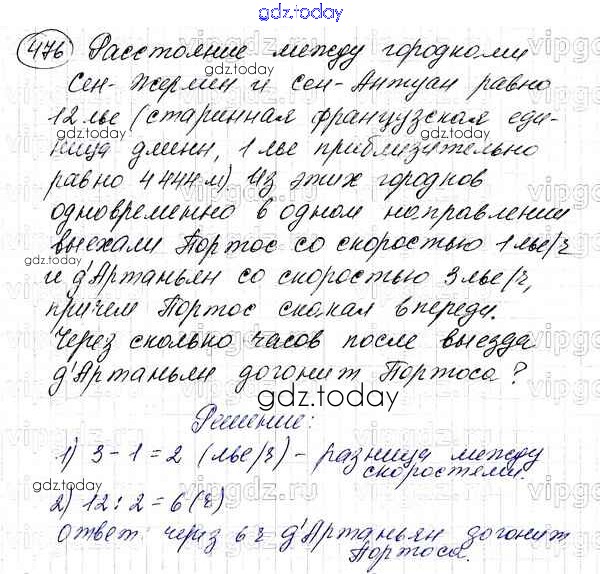 gdz.today
476 Расстояние между городками
Сен-Жермен и Сен-Антуан равно
12 лье (старинная французская еди-
ница длины, 1 лье приблизительно
равно 4 444 м) Из этих городков
одновременно в одном направлении
выехали Портос со скоростью 1 лье/ч
и д'Артаньян со скоростью 3 лье/ч,
причем Портос скакал впереди.
Через сколько часов после выезда
д'Артаньян догонит Портоса?
gdz.today
Решение:
1) 3 - 1 = 2 (лье/ч) - разница между
скоростями.
2) 12 : 2 = 6 (ч)
Ответ: через 6 ч д'Артаньян догонит
Портоса.